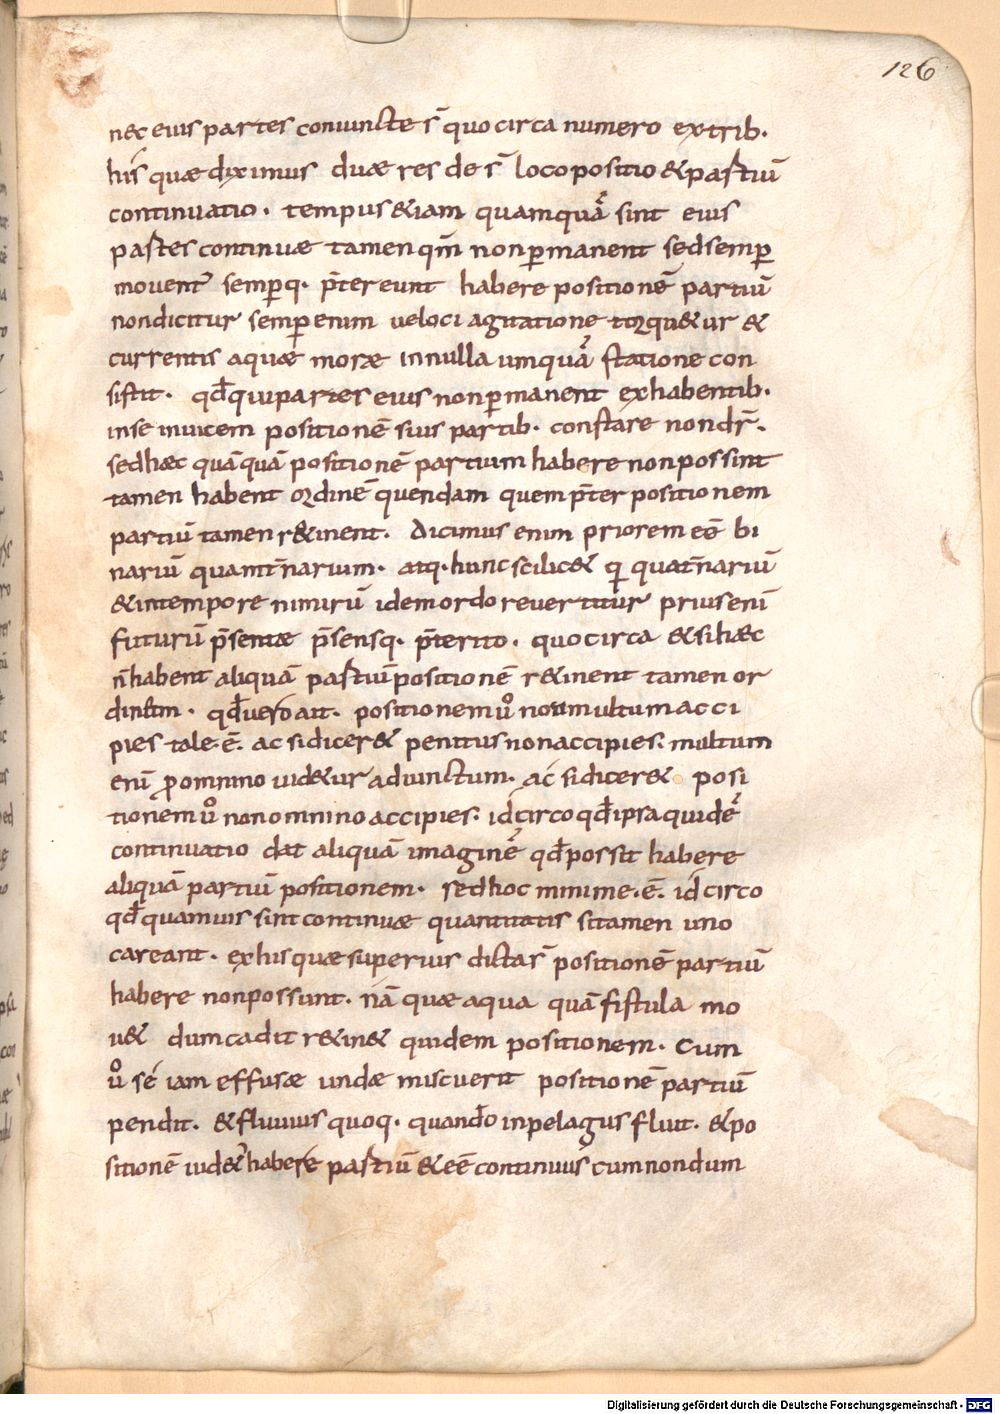 126
nec eius partes coniuncte s̄ quo circa numero ex trib·
his quæ diximus duæ res de s̄ loco positio & partiū
continuatio· tempus &iam quamquā sint eius
partes continuæ tamen qm̄ non ꝑmanent sed semꝑ
mouent᷒ semꝑq· p̄tereunt habere positionē partiū
non dicitur semꝑ enim ueloci agitatione torqu&ur &
currentis aquæ more in nulla umquā statione con
sistit· qđ qui partes eius non ꝑmanent ex habentib·
in se inuicem positionē suis partib· constare non dr̄·
sed hæc quāquā positionē partium habere non possint
tamen habent ordinē quendam quem p̄ter positionem
partiū tamen r&inent· Dicimus enim priorem eē bi
nariū quam t̄narium· atq· hunc scilic& qi quat̄nariū
& in tempore nimirū idem ordo reuertitur prius enī
futurū p̄sente p̄sensq· p̄terito· quo circa & si hæc
n̄ habent aliquā partiū positionē r&inent tamen or
dinem· qđ uero ait· positionem ů non multum acci
pies tale·ē· ac si dicer& penitus non accipies· multum
enī ꝓ omnino uid&ur adiunctum· ac si dicer& posi
tionem ů non omnino accipies· idcirco qđ ipsa quidē
continuatio dat aliquā imaginē qđ possit habere
aliquā partiū positionem· sed hoc minime·ē· idcirco
qđ quamuis sint continuæ quantitatis si tamen uno
careant· ex his quæ superius dicta s̄ positionē partiū
habere non possunt· nā quæ aqua quā fistula mo
u& dum cadit r&in& quidem positionem· Cum
ů se iam effusæ undæ miscuerit positionē partiū
pendit· & fluuius quoq· quando in pelagus fluit· & po
sitionē uid&᷒ habere partiū & eē continuus cum nondum
Digitalisierung gefördert durch die Deutsche Forschungsgemeinschaft · DFG